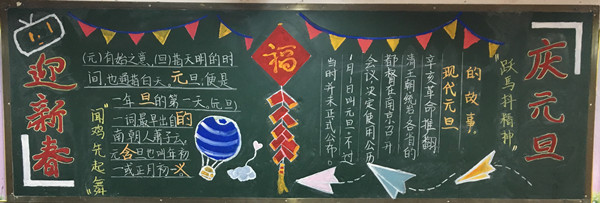 迎新春
(元)有始之意,(旦)指天明的时
间,也通指白天元旦,便是
一年旦的第一天,(元旦)
一词最早出自的
南朝人萧子云,
元含旦也叫年初
一或正月初一义
"闻鸡先起舞"
福
现代元旦
的故事
辛亥革命推翻
清王朝统治各省的
都督在南京召开
会议决定使用公历
1月1日叫元旦,不过
当时并未正式公布。
"跃马抖精神"
庆元旦